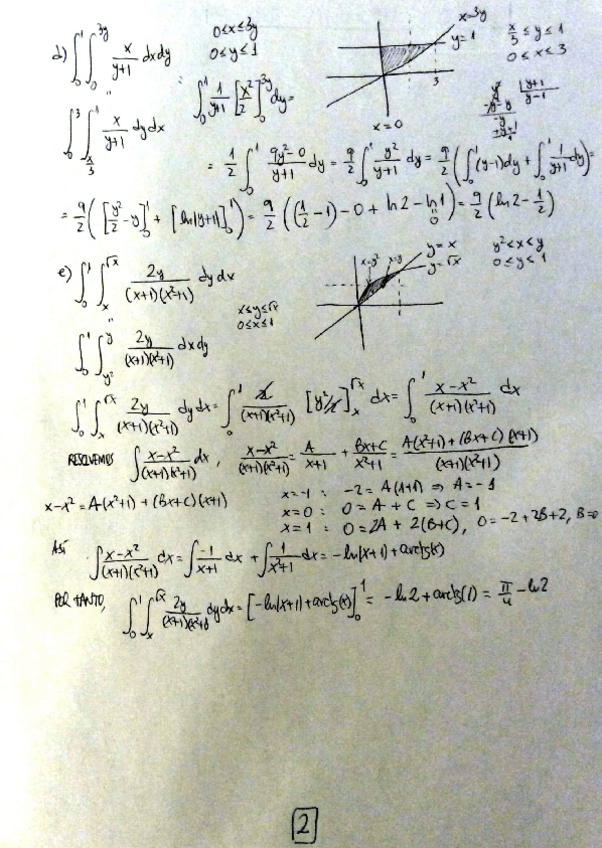 d) ∫₀¹ ∫₀^{3y} x/(y+1) dxdy 0≤x≤3y 0≤y≤1
x=3y y=1 3 x=0
x/3 ≤ y ≤ 1
0 ≤ x ≤ 3
∫₀¹ 1/(y+1) [x²/2]₀^{3y} dy =
∫₀³ ∫_{x/3}^1 x/(y+1) dydx
= 1/2 ∫₀¹ (9y²-0)/(y+1) dy = 9/2 ∫₀¹ y²/(y+1) dy = 9/2 (∫₀¹ (y-1)dy + ∫₀¹ 1/(y+1) dy) =
= 9/2 ([y²/2 - y]₀¹ + [ln|y+1|]₀¹) = 9/2 ((1/2 - 1) - 0 + ln 2 - ln 1) = 9/2 (ln 2 - 1/2)
0
e) ∫₀¹ ∫ₓ^{√x} 2y/((x+1)(x²+1)) dydx
x≤y≤√x
0≤x≤1
x=y² x=y y=x y=√x
y²<x<y
0≤y≤1
∫₀¹ ∫_{y²}^y 2y/((x+1)(x²+1)) dxdy
∫₀¹ ∫ₓ^{√x} 2y/((x+1)(x²+1)) dydx = ∫₀¹ 2/((x+1)(x²+1)) [y²/2]ₓ^{√x} dx = ∫₀¹ (x-x²)/((x+1)(x²+1)) dx
RESOLVEMOS ∫ (x-x²)/((x+1)(x²+1)) dx, (x-x²)/((x+1)(x²+1)) = A/(x+1) + (Bx+C)/(x²+1) = (A(x²+1)+(Bx+C)(x+1))/((x+1)(x²+1))
x-x² = A(x²+1) + (Bx+C)(x+1)
x=-1 : -2 = A(1+1) ⇒ A=-1
x=0 : 0 = A + C ⇒ C=1
x=1 : 0=2A + 2(B+C), 0=-2+2B+2, B=0
ASÍ ∫ (x-x²)/((x+1)(x²+1)) dx = ∫ -1/(x+1) dx + ∫ 1/(x²+1) dx = -ln(x+1) + arctg(x)
POR TANTO, ∫₀¹ ∫ₓ^{√x} 2y/((x+1)(x²+1)) dydx = [-ln(x+1) + arctg(x)]₀¹ = -ln 2 + arctg(1) = π/4 - ln 2
2